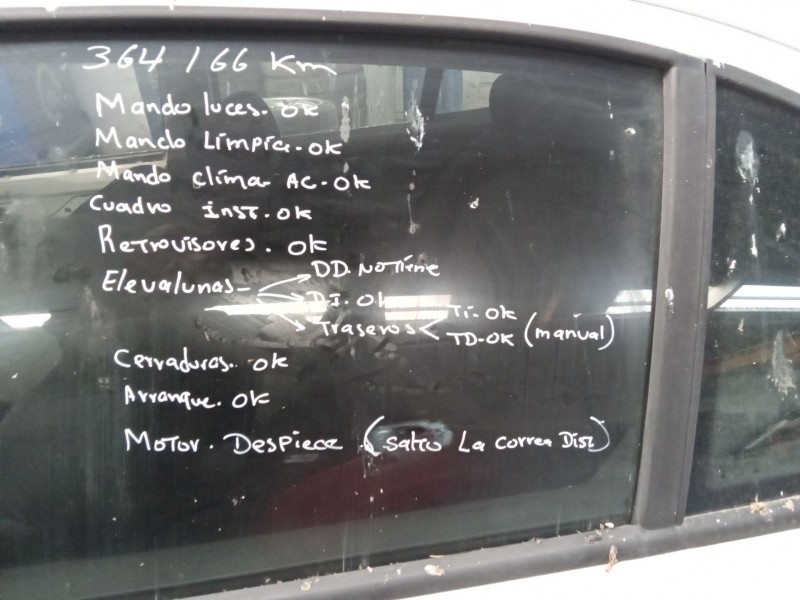 364166 Km
Mando luces. OK
Mando Limpia. OK
Mando clima AC. OK
Cuadro inst. OK
Retrovisores. OK
Elevalunas - DD. NO Tiene
D.I. OK
Traseros < Ti. OK
TD. OK (manual)
Cerraduras. OK
Arranque. OK
Motor. Despiece (salto La correa Dist)